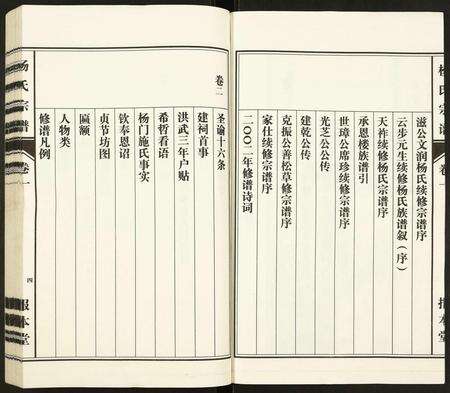 滋公文润杨氏续修宗谱序
云步元生续修杨氏族谱叙(序)
天祚续修杨氏宗谱序
承恩楼族谱引
世璋公席珍续修宗谱序
光芝公公传
建乾公传
克振公善松草修宗谱序
家仕续修宗谱序
二00二年修谱诗词
卷二
圣谕十六条
建祠首事
希哲看语
洪武三年户贴
杨门施氏事实
钦奉恩诏
贞节坊图
匾额
人物类
修谱凡例
杨氏宗谱
卷
四
报本堂